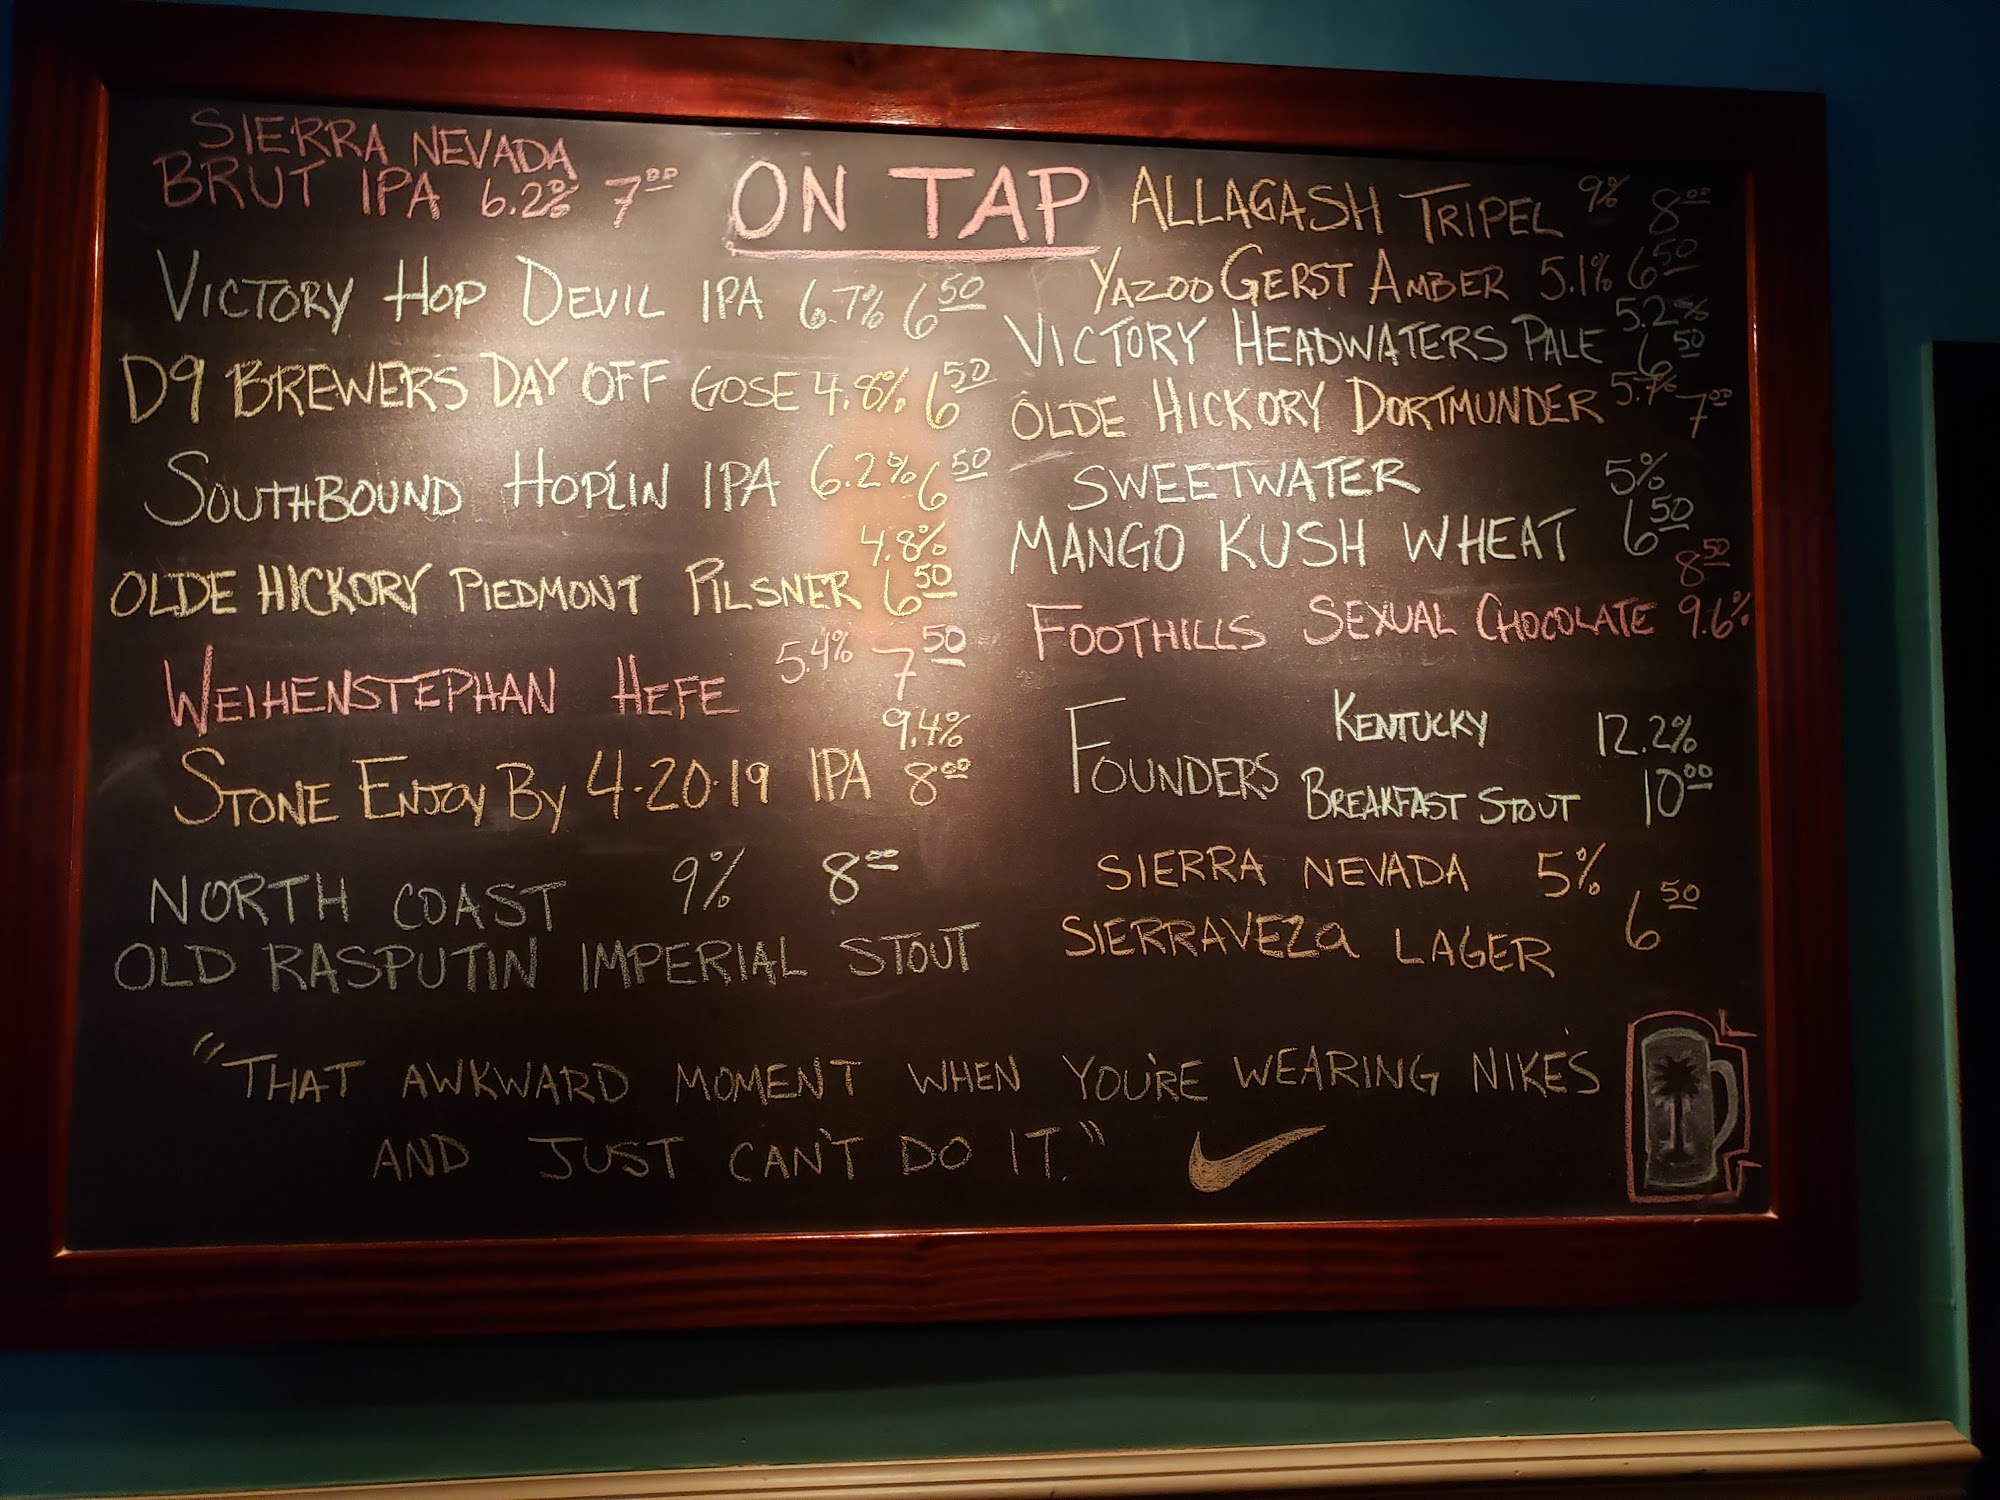 SIERRA NEVADA
BRUT IPA 6.2% 7⁰⁰
ON TAP
VICTORY HOP DEVIL IPA 6.7% 6⁵⁰
D9 BREWERS DAY OFF GOSE 4.8% 6⁵⁰
SOUTHBOUND HOPLIN IPA 6.2% 6⁵⁰
4.8%
OLDE HICKORY PIEDMONT PILSNER 6⁵⁰
WEIHENSTEPHAN HEFE 5.4% 7⁵⁰
9.4%
STONE ENJOY BY 4·20·19 IPA 8⁰⁰
NORTH COAST 9% 8⁰⁰
OLD RASPUTIN IMPERIAL STOUT
ALLAGASH TRIPEL 9% 8⁰⁰
YAZOO GERST AMBER 5.1% 6⁵⁰
5.2%
VICTORY HEADWATERS PALE 6⁵⁰
OLDE HICKORY DORTMUNDER 7⁰⁰
SWEETWATER 5%
MANGO KUSH WHEAT 6⁵⁰
8⁵⁰
FOOTHILLS SEXUAL CHOCOLATE 9.6%
FOUNDERS KENTUCKY 12.2%
BREAKFAST STOUT 10⁰⁰
SIERRA NEVADA 5%
SIERRAVEZa LAGER 6⁵⁰
"THAT AWKWARD MOMENT WHEN YOU'RE WEARING NIKE'S
AND JUST CAN'T DO IT."